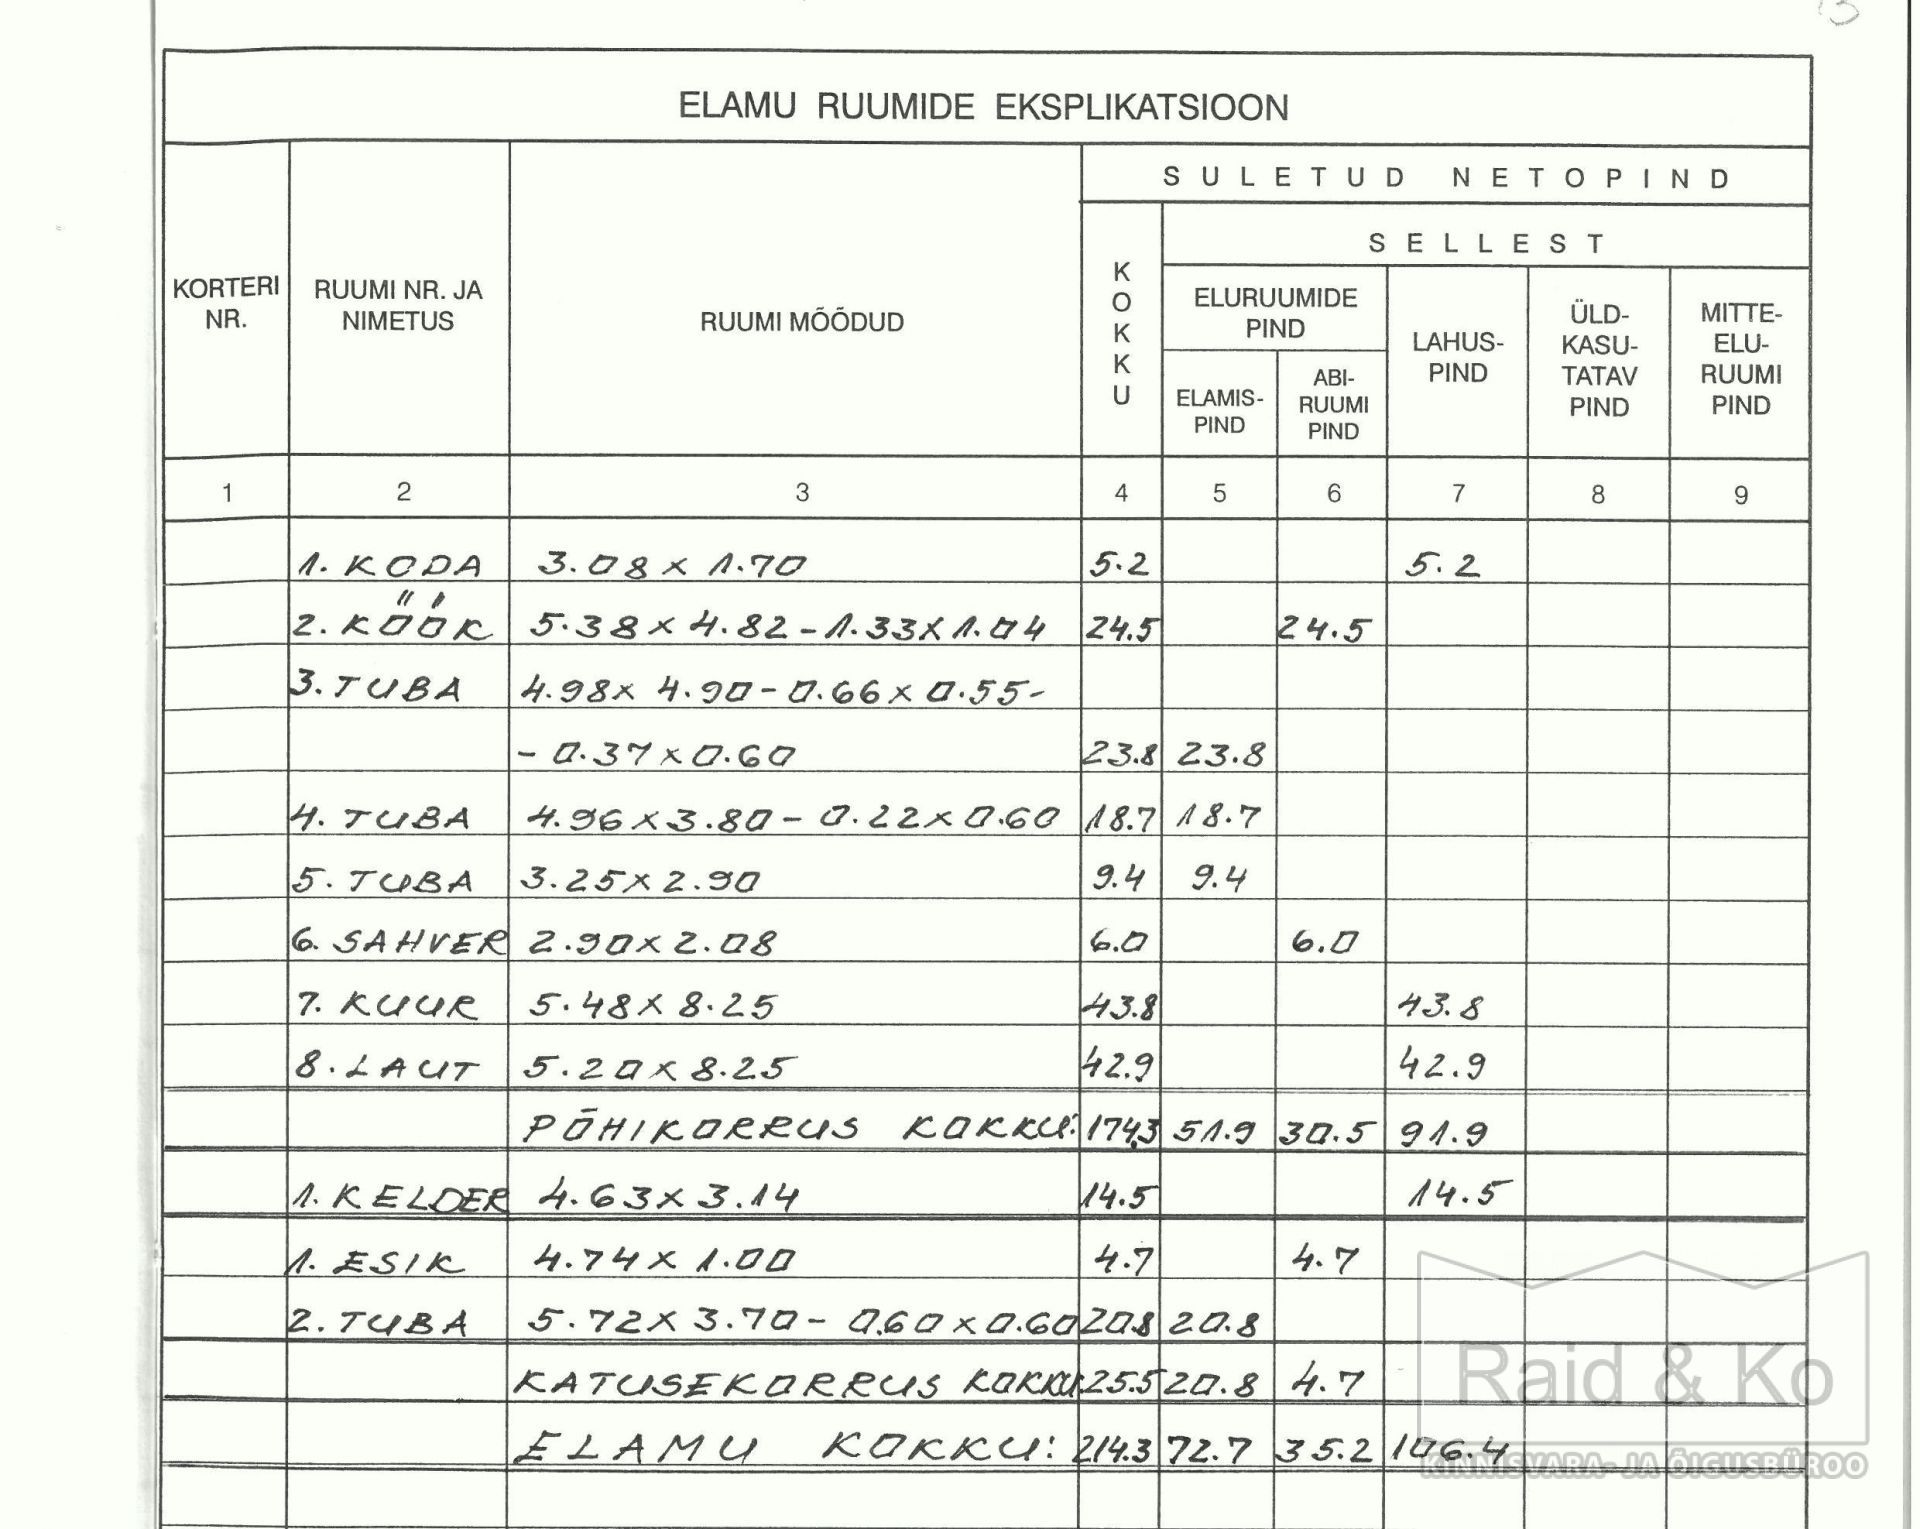 3
ELAMU RUUMIDE EKSPLIKATSIOON
KORTERI NR.
RUUMI NR. JA NIMETUS
RUUMI MÕÕDUD
SULETUD NETOPIND
KOKKU
SELLEST
ELURUUMIDE PIND
ELAMIS-PIND
ABI-RUUMI PIND
LAHUS-PIND
ÜLD-KASU-TATAV PIND
MITTE-ELU-RUUMI PIND
1 2 3 4 5 6 7 8 9
1. KODA 3.08 x 1.70 5.2 5.2
2. KÖÖK 5.38 x 4.82 - 1.33 x 1.04 24.5 24.5
3. TUBA 4.98 x 4.90 - 0.66 x 0.55 -
- 0.37 x 0.60 23.8 23.8
4. TUBA 4.96 x 3.80 - 0.22 x 0.60 18.7 18.7
5. TUBA 3.25 x 2.90 9.4 9.4
6. SAHVER 2.90 x 2.08 6.0 6.0
7. KUUR 5.48 x 8.25 43.8 43.8
8. LAUT 5.20 x 8.25 42.9 42.9
PÕHIKORRUS KOKKU: 174.3 51.9 30.5 91.9
1. KELDER 4.63 x 3.14 14.5 14.5
1. ESIK 4.74 x 1.00 4.7 4.7
2. TUBA 5.72 x 3.70 - 0.60 x 0.60 20.8 20.8
KATUSEKORRUS KOKKU 25.5 20.8 4.7
ELAMU KOKKU: 214.3 72.7 35.2 106.4
Raid & Ko
KINNISVARA- JA ÕIGUSBÜROO